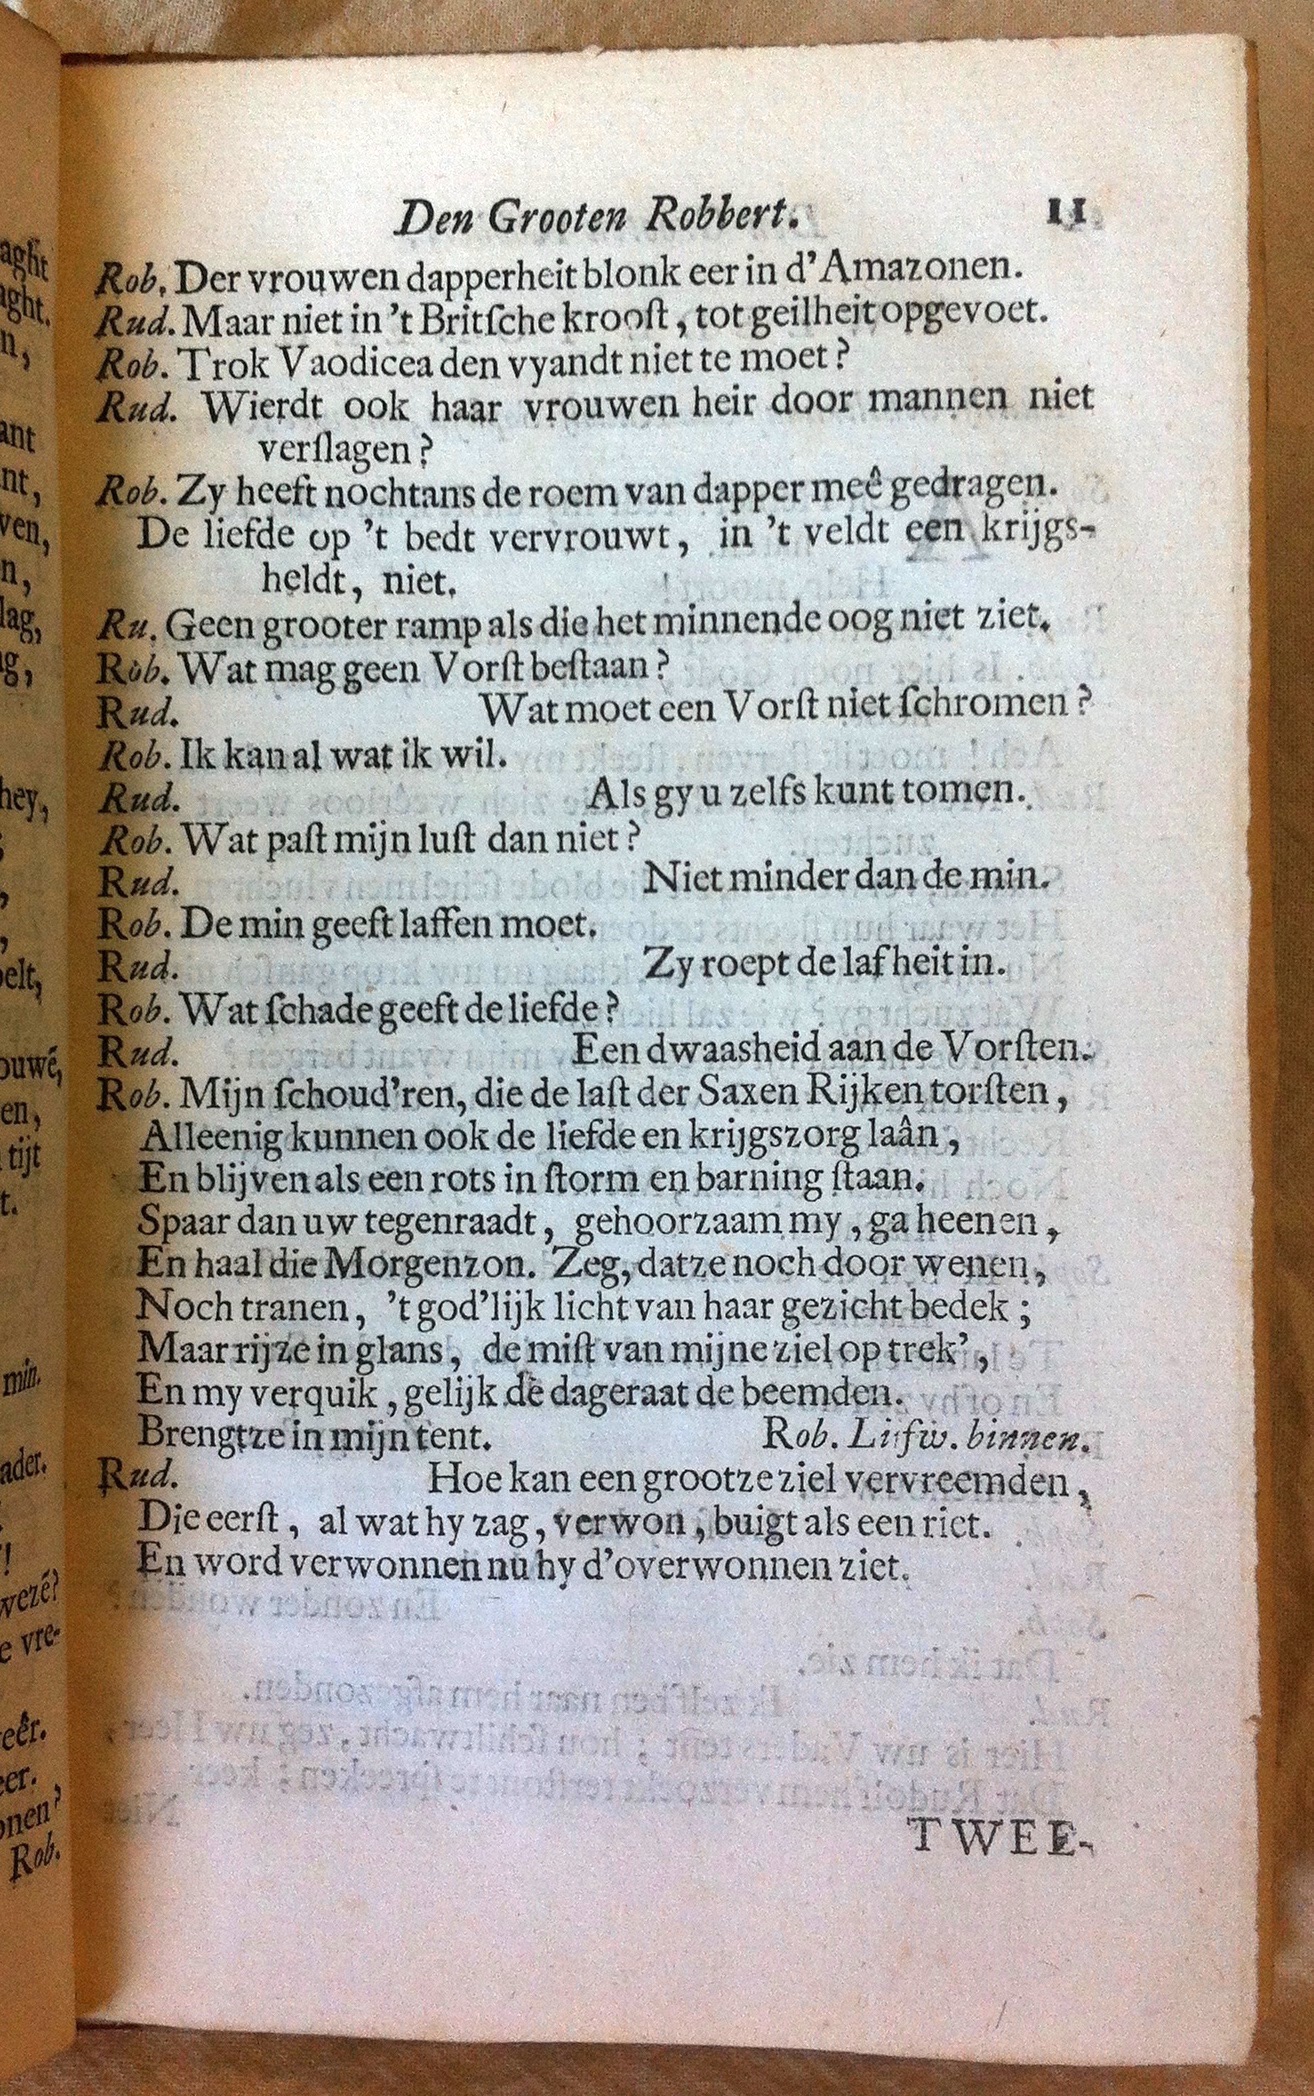 Den Grooten Robbert. 11
Rob. Der vrouwen dapperheit blonk eer in d'Amazonen.
Rud. Maar niet in 't Britſche krooſt, tot geilheit opgevoet.
Rob. Trok Vaodicea den vyandt niet te moet?
Rud. Wierdt ook haar vrouwen heir door mannen niet
verſlagen?
Rob. Zy heeft nochtans de roem van dapper meê gedragen.
De liefde op 't bedt vervrouwt, in 't veldt een krijgs-
heldt, niet.
Ru. Geen grooter ramp als die het minnende oog niet ziet.
Rob. Wat mag geen Vorſt beſtaan?
Rud. Wat moet een Vorſt niet ſchromen?
Rob. Ik kan al wat ik wil.
Rud. Als gy u zelfs kunt tomen.
Rob. Wat paſt mijn luſt dan niet?
Rud. Niet minder dan de min.
Rob. De min geeft laffen moet.
Rud. Zy roept de lafheit in.
Rob. Wat ſchade geeft de liefde?
Rud. Een dwaasheid aan de Vorſten.
Rob. Mijn ſchoud'ren, die de laſt der Saxen Rijken torſten,
Alleenig kunnen ook de liefde en krijgszorg laân,
En blijven als een rots in ſtorm en barning ſtaan.
Spaar dan uw tegenraadt, gehoorzaam my, ga heenen,
En haal die Morgenzon. Zeg, datze noch door wenen,
Noch tranen, 't god'lijk licht van haar gezicht bedek;
Maar rijze in glans, de miſt van mijne ziel op trek',
En my verquik, gelijk de dageraat de beemden.
Brengtze in mijn tent. Rob. Lijfw. binnen.
Rud. Hoe kan een grootze ziel vervreemden,
Die eerſt, al wat hy zag, verwon, buigt als een riet.
En word verwonnen nu hy d'overwonnen ziet.
TWEE-